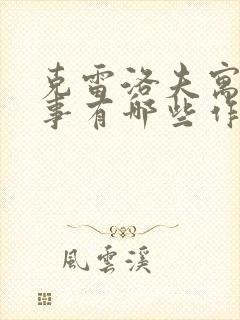 克雷洛夫寓
事有哪些作
風雲溪